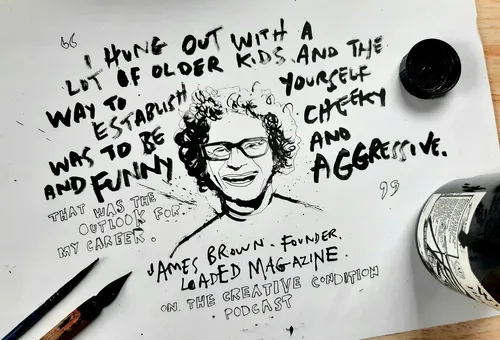 “
I HUNG OUT WITH A
LOT OF OLDER KIDS AND THE
WAY TO ESTABLISH YOURSELF
WAS TO BE CHEEKY
AND FUNNY AND
AGGRESSIVE.
”
THAT WAS THE
OUTLOOK FOR
MY CAREER.
JAMES BROWN. FOUNDER.
LOADED MAGAZINE.
ON THE CREATIVE CONDITION
PODCAST